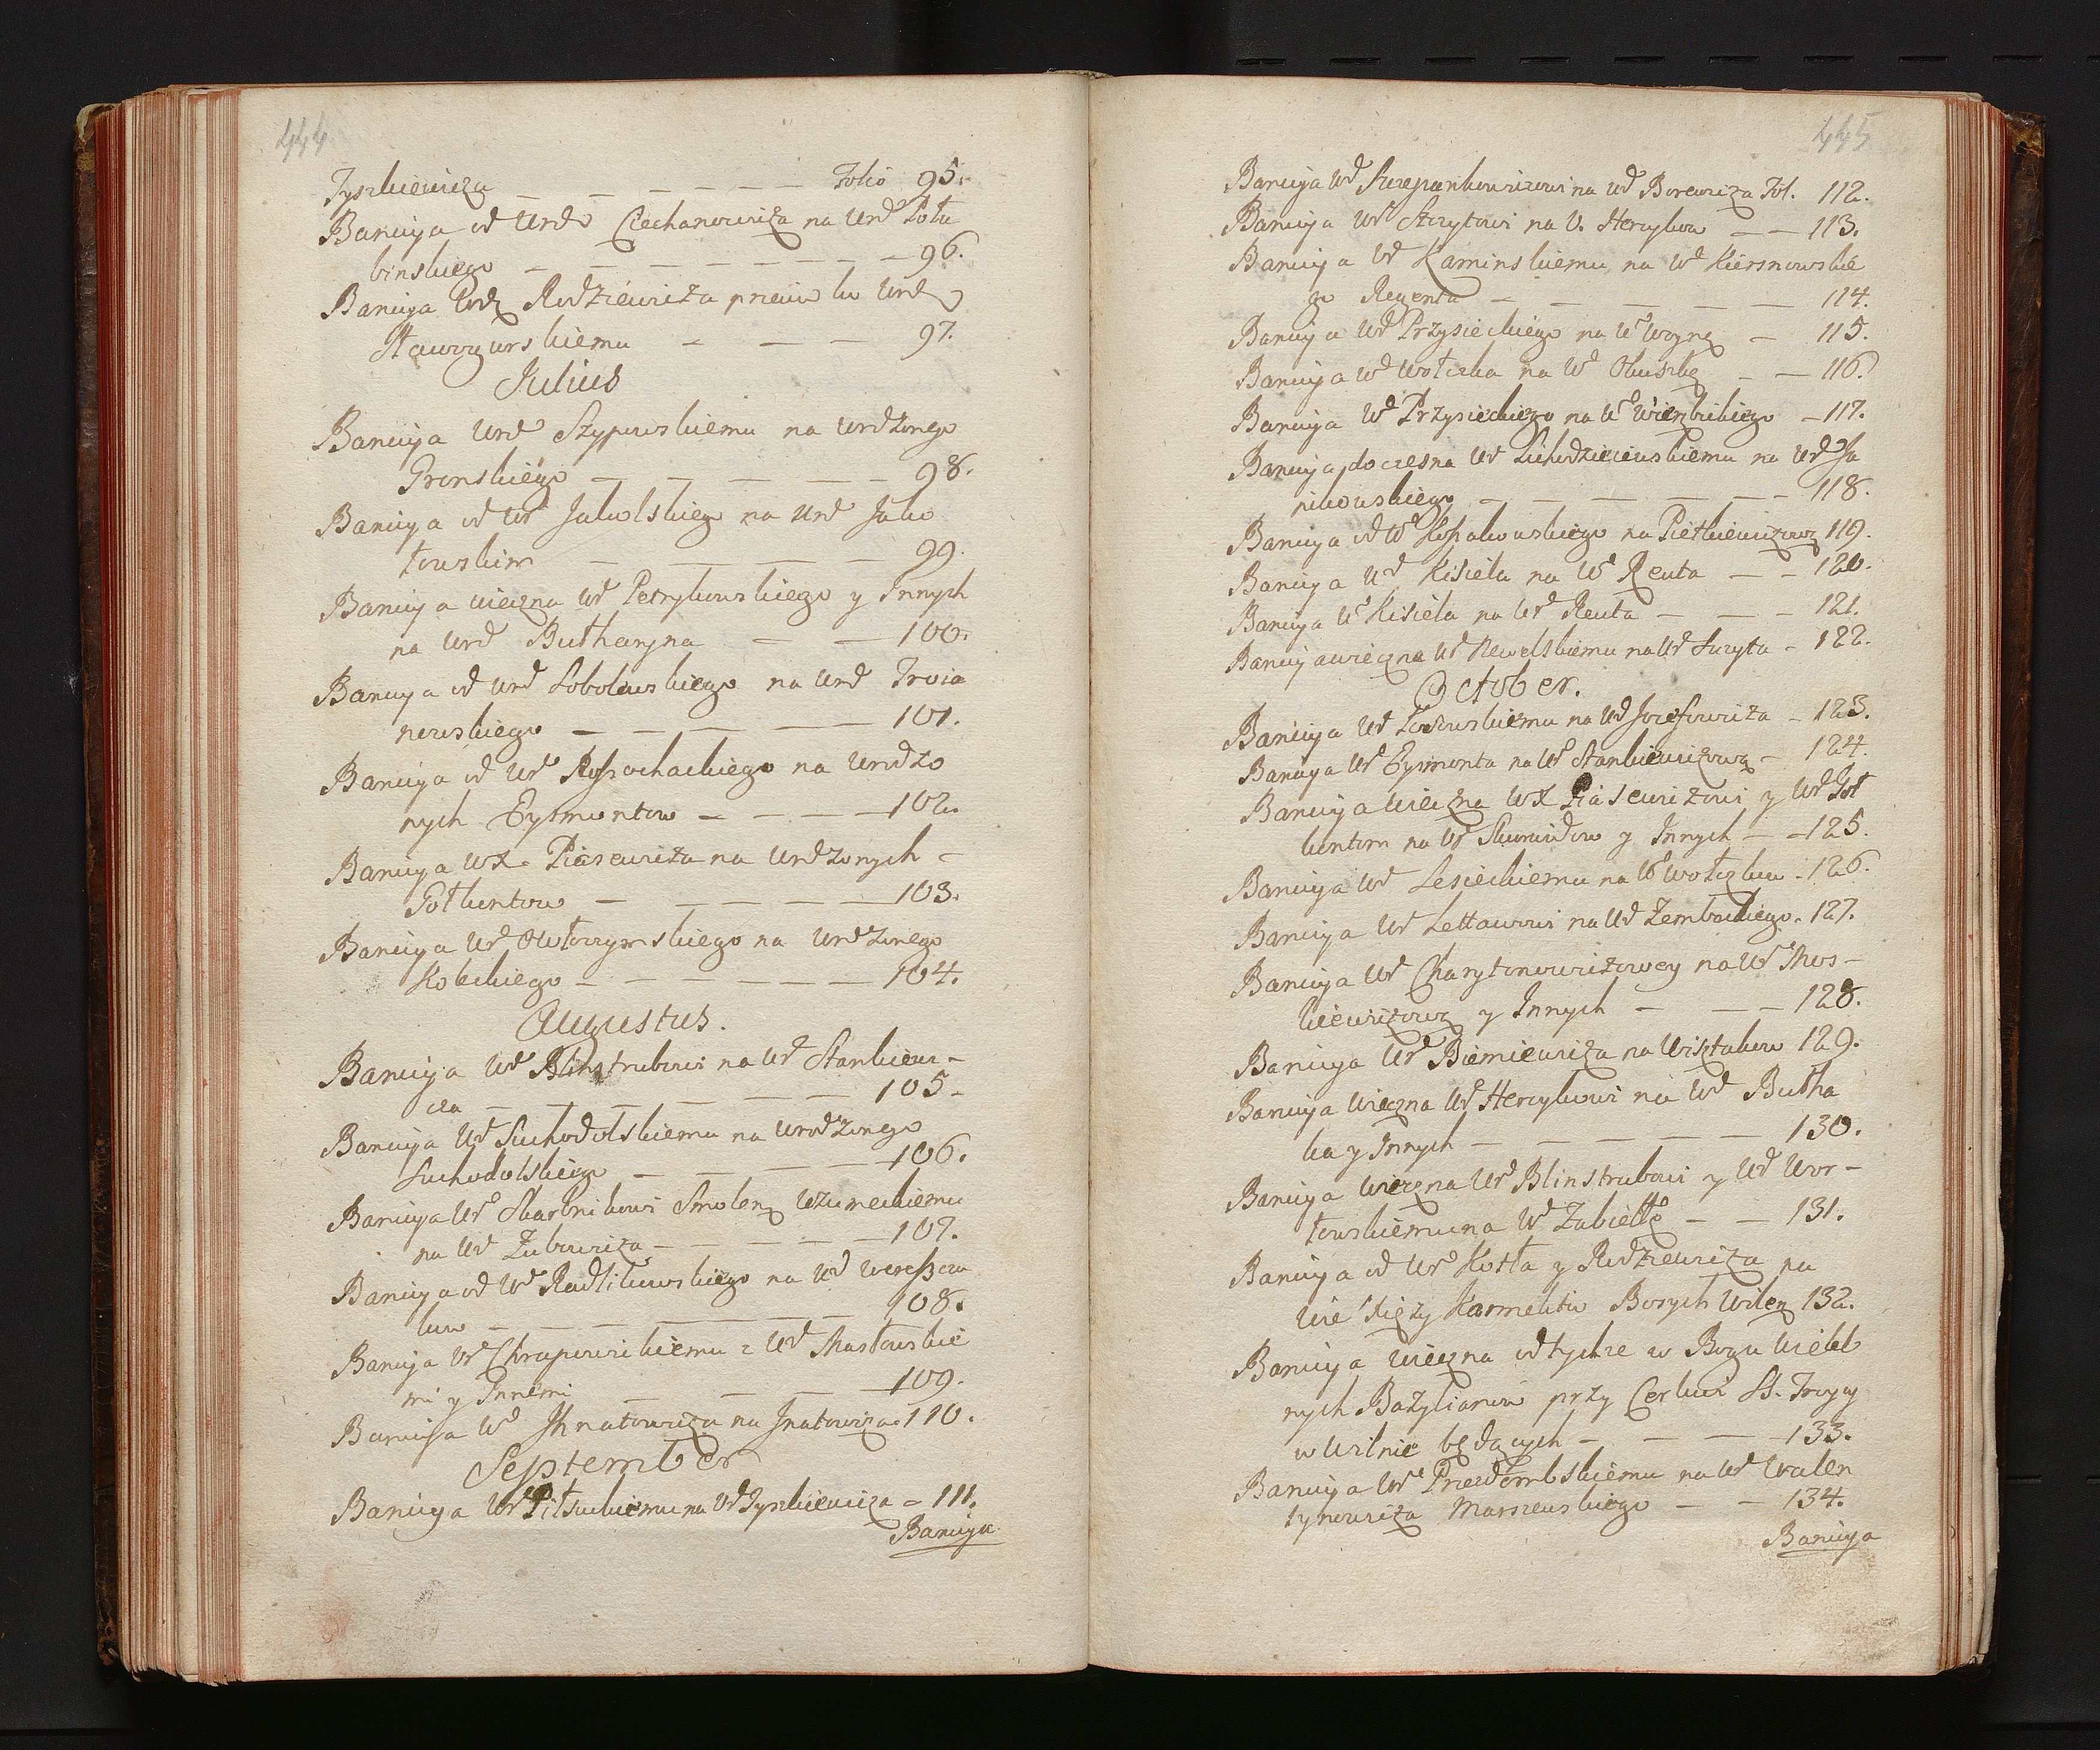 444
Tyszkiewicza — — — — — — Folio 95.
Banicya od Urd Ciechanowicza na Urd Połu
binskiego — — — — — — — 96.
Banicya Urdz Rodziewicza przeciwko Urdz
Stawogurskiemu — — — 97.
Julius
Banicya Urd Szypowskiemu na Urdzonego
Gronskiego — — — — — 98.
Banicya od Ur Jakolskiego na Urd Jako
towskim — — — — — 99.
Banicya wieczna Ur Petrykowskiego y Innych
na Urd Butharyna — — 100.
Banicya od Urd Sobolewskiego na Urd Troia
nowskiego — — — — — 101.
Banicya od Ur Rossochackiego na Urodzo
nych Eysmontow — — — — 102.
Banicya WX. Piasewicza na Urdzonych —
Gołkontow — — — — — 103.
Banicya Ur Owłoczymskiego na Urdzonego
Kobeckiego — — — — — — 104.
Augustus.
Banicyja Ur Blinstrubowi na Ur Stankiewi —
cza — — — — — — — 105 —
Banicya Ur Suchodolskiemu na Urodzonego
Suchodolskiego — — — — — 106.
Banicya Ur Skarbnikowi Smolen Uzumeckiemu
na Ur Zubowicza — — — — — 107.
Banicya od Ur Radlikowskiego na Ur Wereszcza
kow — — — — — — — 108.
Banicya Ur Chrapowickiemu z Ur Masłowskie
mi y Innemi — — — — 109.
Banicya Ur Ihnatowicza na Inatowicza 110.
September
Banicya Ur Piłsuckiemu na Ur Tyszkiewicza — 111.
Banicya
445
Banicya Ur Szczepankowiczowi na Ur Borewicza Fol. 112.
Banicya Ur Szczytowi na U. Hercykow — — 113.
Banicya Ur Kaminskiemu na Ur Kiersnowskie
go Regenta — — — — — 114.
Banicya Ur Przysieckiego na Ur Woynę — 115.
Banicya Ur Wołczka na Ur Okuszkę — — 116.
Banicya Ur Przysieckiego na Ur Wierzbickiego — 117.
Banicya doczesna Ur Suchodziciewskiemu na Ur Ja
nikowskiego — — — — — — 118.
Banicya od Ur Kossakowskiego na Pietkiewiczową 119.
Banicya Ur Kisiela na Ur Reuta — — 120.
Banicya Ur Kisiela na Ur Reuta — — — 121.
Banicya wieczna Ur Newelskiemu na Ur Szczyta — 122.
October.
Banicya Ur Łozowskiemu na Ur Jozefowicza — 123.
Banicya Ur Eysmonta na Ur Stankiewiczową — 124.
Banicya wieczna WX Piasewiczowi y Ur Goł
kontom na Ur Skomudow y Innych — — 125.
Banicya Ur Lesieckiemu na Ur Wołczkow — 126.
Banicya Ur Lettawowi na Ur Zembockiego — 127.
Banicya Ur Charytonowiczowey na Ur Mos —
kiewiczową y Innych — — — 128.
Banicya Ur Biemiewicza na Wisztakow 129.
Banicya wieczna Ur Hercykowi na Ur Butha
ka y Innych — — — — — 130.
Banicya wieczna Ur Blinstrubowi y Ur Wor —
towskiemu na Ur Zabiełłę — — 131.
Banicya od Ur Kotła y Rodziewicza na
Wie Xięży Karmelitow Bosych Wilen 132.
Banicya wieczna od tychże w Bogu Wieleb
nych Bazylianow przy Cerkwi SS. Troycy
w Wilnie będących — — — 133.
Banicya Ur Przewłembskiemu na Ur Walen
tynowicza Marszewskiego — — 134.
Banicya